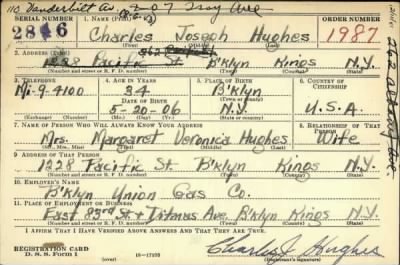 110 Vanderbilt Av. 207 Troy Ave
SERIAL NUMBER 1. NAME (Print) ORDER NUMBER
2816 Charles Joseph Hughes 1987
2. ADDRESS (Print)
1228 Pacific St. B'klyn Kings N.Y.
(Number and street or R. F. D. number) (Town) (County) (State)
3. TELEPHONE 4. AGE IN YEARS 5. PLACE OF BIRTH 6. COUNTRY OF CITIZENSHIP
34 B'klyn
DATE OF BIRTH (Town or county)
9-4100 5-20-06 N.Y. U.S.A.
(Exchange) (No.) (Mo.) (Day) (Yr.) (State or country)
7. NAME OF PERSON WHO WILL ALWAYS KNOW YOUR ADDRESS 8. RELATIONSHIP OF THAT PERSON
Mrs. Margaret Veronica Hughes Wife
(Mr., Mrs., Miss) (First) (Middle) (Last)
9. ADDRESS OF THAT PERSON
1228 Pacific St. B'klyn Kings N.Y.
(Number and street or R. F. D. number) (Town) (County) (State)
10. EMPLOYER'S NAME
B'klyn Union Gas Co.
11. PLACE OF EMPLOYMENT OR BUSINESS
East 83rd St. + Ditmas Ave. B'klyn Kings N.Y.
(Number and street or R. F. D. number) (Town) (County) (State)
I AFFIRM THAT I HAVE VERIFIED ABOVE ANSWERS AND THAT THEY ARE TRUE.
REGISTRATION CARD
D. S. S. Form 1 16-17105 Charles J Hughes
(Registrant's signature)